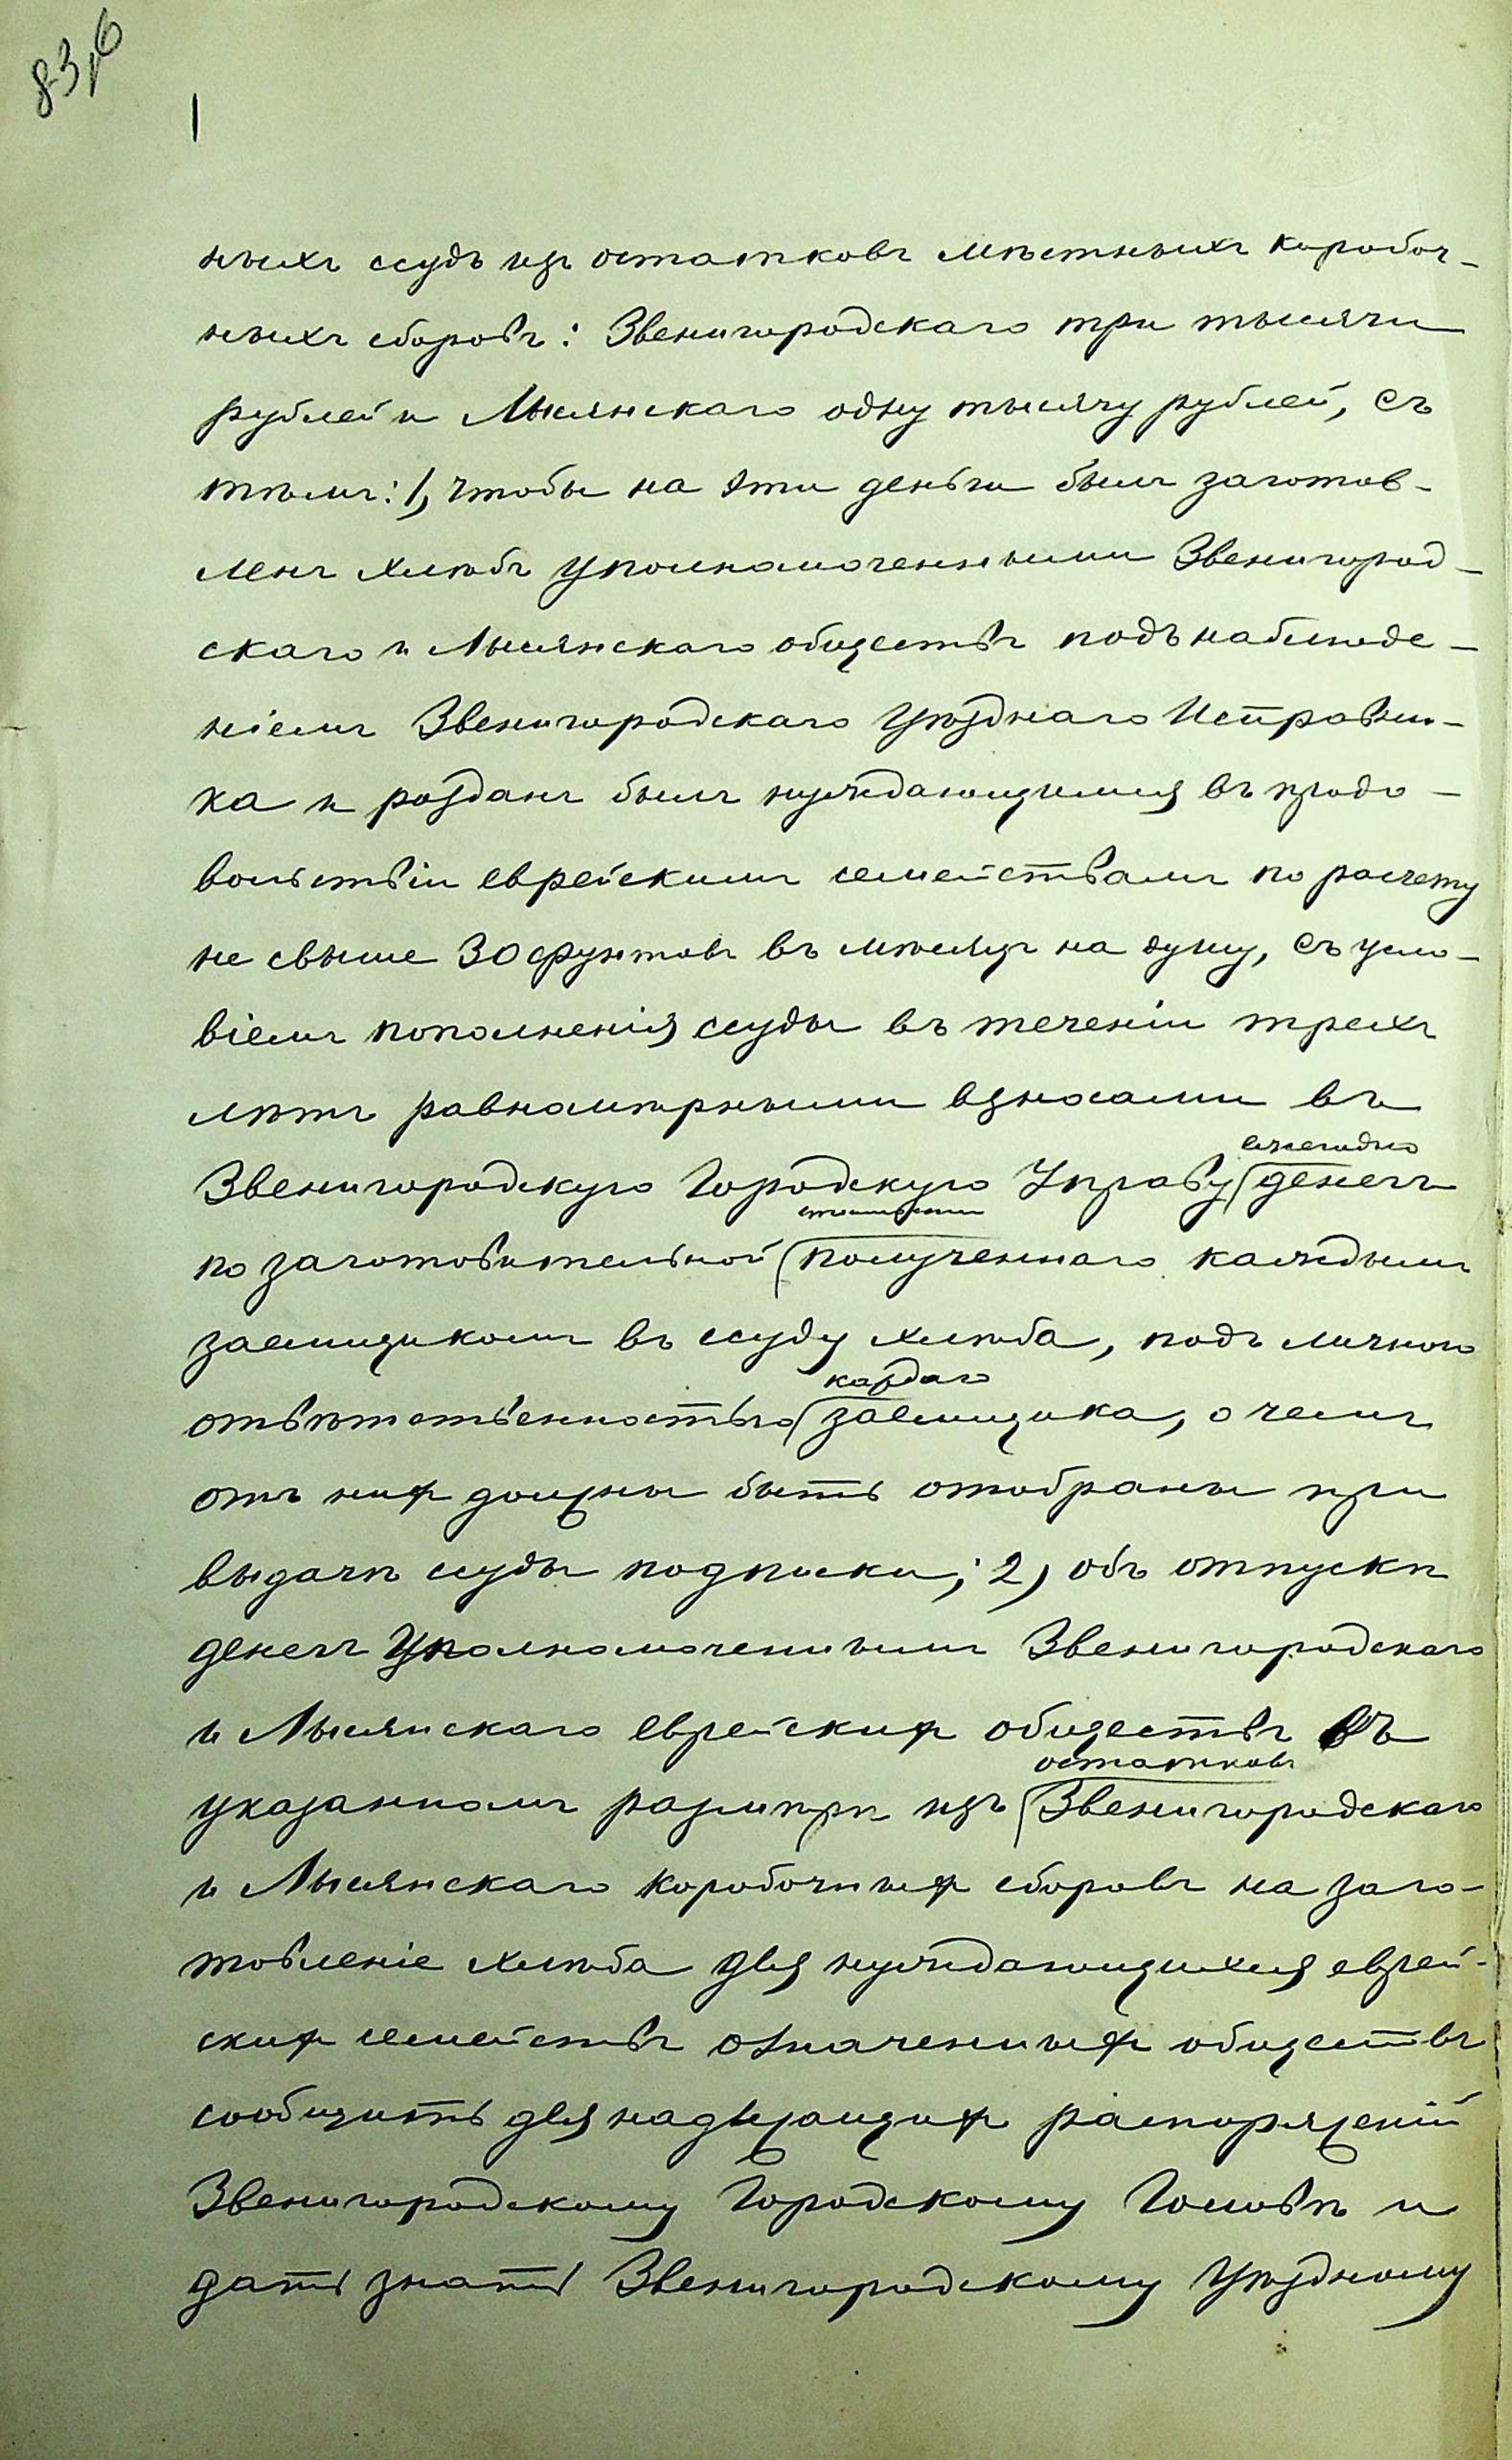 83,б
ныхъ ссудъ изъ остатковъ мѣстныхъ коробоч-
ныхъ сборовъ: Звенигородскаго три тысячи
рублей и Лысянскаго одну тысячу рублей, съ
тѣмъ: 1, чтобы на эти деньги былъ заготов-
ленъ хлѣбъ уполномоченными Звенигород-
скаго и Лысянскаго обществъ подъ наблюде-
ніемъ Звенигородскаго Уѣзднаго Исправни-
ка и розданъ былъ нуждающимся въ продо-
вольствіи еврейскимъ семействамъ по расчету
не свыше 30 фунтовъ въ мѣсяцъ на душу, съ усло-
віемъ пополненія ссуды въ теченіи трехъ
лѣтъ равномѣрными взносами въ
ежегодно
Звенигородскую Городскую Управу денегъ
стоимости
по заготовительной полученнаго каждымъ
заемщикомъ въ ссуду хлѣба, подъ личною
каждаго
отвѣтственностью заемщика, о чемъ
отъ нихъ должны быть отобраны при
выдачѣ ссуды подписки; 2) объ отпускѣ
денегъ Уполномоченнымъ Звенигородскаго
и Лысянскаго еврейскихъ обществъ въ
остатковъ
указанномъ размѣрѣ изъ Звенигородскаго
и Лысянскаго коробочныхъ сборовъ на заго-
товленіе хлѣба для нуждающихся еврей-
скихъ семействъ означенныхъ обществъ
сообщить для надлежащихъ распоряженій
Звенигородскому Городскому Головѣ и
дать знать Звенигородскому Уѣздному